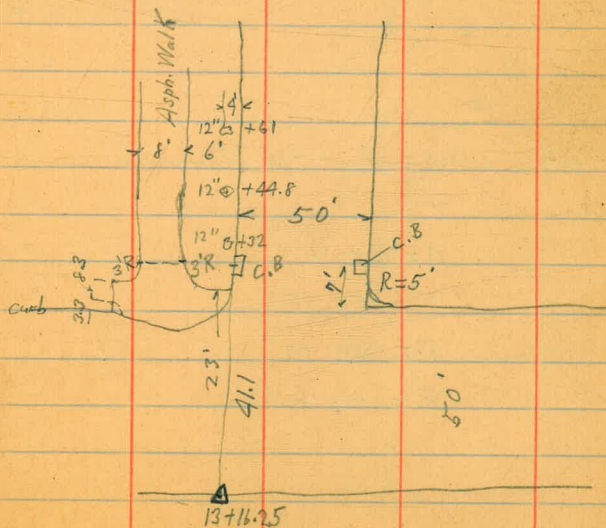 Asph. Walk
4'
12" +61
8' 6'
12" +44.8
50'
12" +32
C.B
3'R 3'R C.B
7' R=5'
8.3
3.3
Curb
23'
41.1
50'
13+16.25